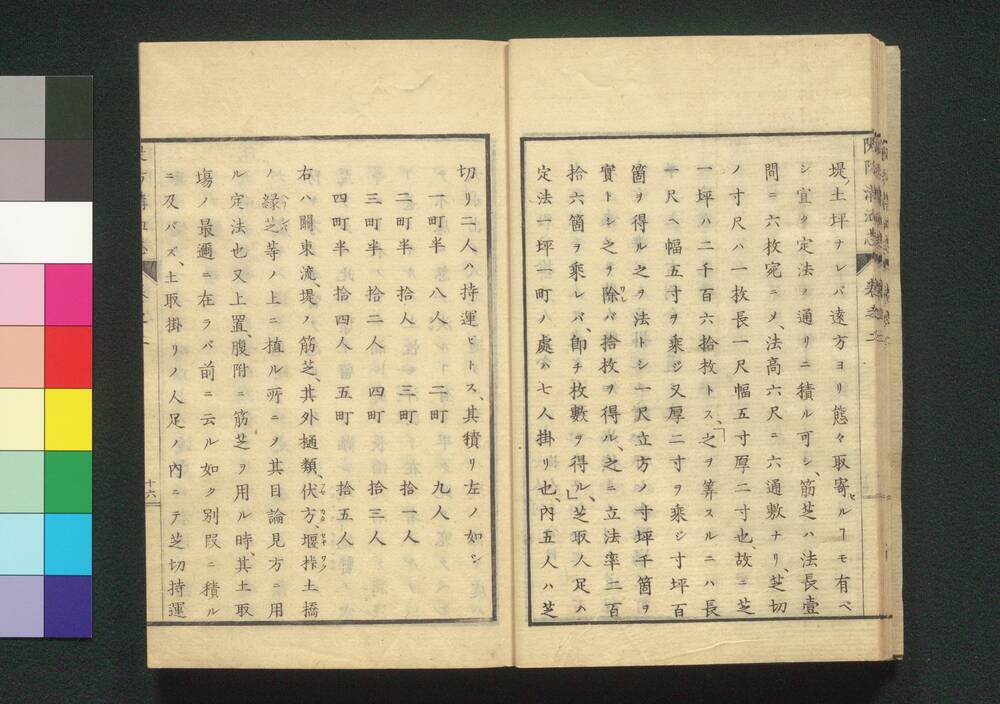 堤ノ土坪ナレバ遠方ヨリ態々取寄ヒルヿモ有ベ
シ宜ク定法ノ通リニ積ル可シ、筋芝ハ法長壹
間ニ六枚宛ニメ、法高六尺ニ六通敷ナリ、芝切
ノ寸尺ハ一枚長一尺幅五寸厚二寸也、故ニ芝
一坪ハ二千百六拾枚トス、」之ヲ筭スルニハ長
一尺ヘ幅五寸ヲ乘ジ又厚二寸ヲ乘シ寸坪百
箇ヲ得ル之ヲ法トシ一尺立方ノ寸坪千箇ヲ
實トシ之ヲ除バ拾枚ヲ得ル、之ニ立法率二百
拾六箇ヲ乘レバ、卽チ枚數ヲ得ル、」芝取人足ハ
定法一坪一町ノ處ハ七人掛リ也、內五人ハ芝
切リ二人ハ持運ビトス、其積リ左ノ如シ
一町半 八人 二町 九人
二町半 拾人 三町 拾一人
三町半 拾二人 四町 拾三人
四町半 拾四人 五町 拾五人
右ハ關東流、堤ノ筋芝、其外樋類、伏方、堰𣖾土橋
ノ緣芝等ノ上ニ植ル所ニノ其目論見方ニ用
ル定法也又上置、腹附ニ筋芝ヲ用ル時、其土取
塲ノ最邇ニ在ラバ前ニ云ル如ク別段ニ積ル
ニ及バズ、土取掛リノ人足ノ內ニテ芝切持運
十六